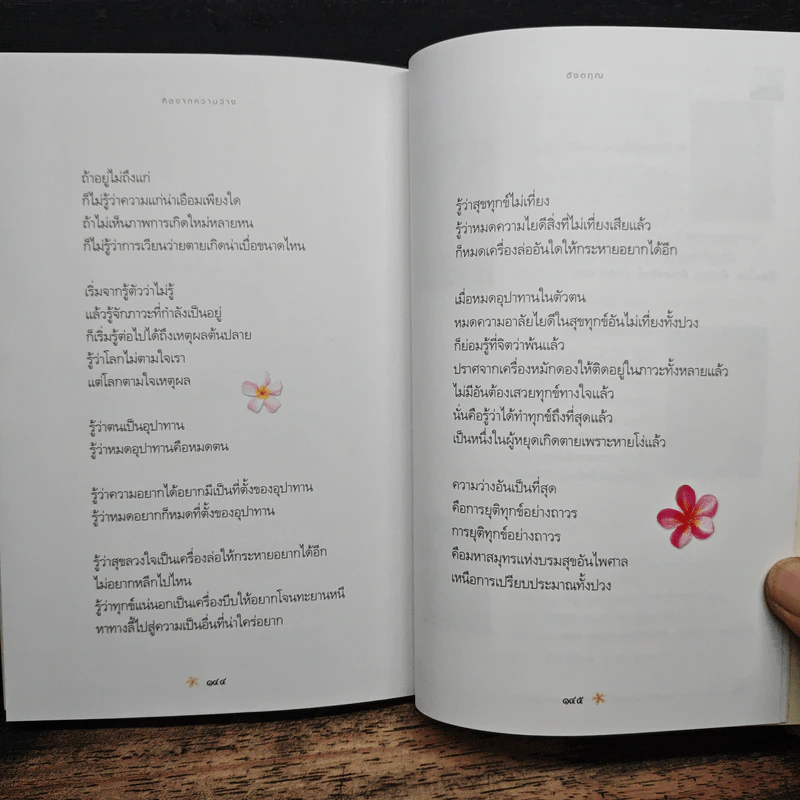 คิดจากความว่าง
ถ้าอยู่ไม่ถึงแก่
ก็ไม่รู้ว่าความแก่น่าเอือมเพียงใด
ถ้าไม่เห็นภาพการเกิดใหม่หลายหน
ก็ไม่รู้ว่าการเวียนว่ายตายเกิดน่าเบื่อขนาดไหน
เริ่มจากรู้ตัวว่าไม่รู้
แล้วรู้จักภาวะที่กำลังเป็นอยู่
ก็เริ่มรู้ต่อไปได้ถึงเหตุผลต้นปลาย
รู้ว่าโลกไม่ตามใจเรา
แต่โลกตามใจเหตุผล
รู้ว่าตนเป็นอุปาทาน
รู้ว่าหมดอุปาทานคือหมดตน
รู้ว่าความอยากได้อยากมีเป็นที่ตั้งของอุปาทาน
รู้ว่าหมดอยากก็หมดที่ตั้งของอุปาทาน
รู้ว่าสุขลวงใจเป็นเครื่องล่อให้กระหายอยากได้อีก
ไม่อยากหลีกไปไหน
รู้ว่าทุกข์แน่นอกเป็นเครื่องบีบให้อยากโจนทะยานหนี
หาทางลี้ไปสู่ความเป็นอื่นที่น่าใคร่อยาก
๑๔๔
ดังตฤณ
รู้ว่าสุขทุกข์ไม่เที่ยง
รู้ว่าหมดความไยดีสิ่งที่ไม่เที่ยงเสียแล้ว
ก็หมดเครื่องล่ออันใดให้กระหายอยากได้อีก
เมื่อหมดอุปาทานในตัวตน
หมดความอาลัยไยดีในสุขทุกข์อันไม่เที่ยงทั้งปวง
ก็ย่อมรู้ที่จิตว่าพ้นแล้ว
ปราศจากเครื่องหมักดองให้ติดอยู่ในภาวะทั้งหลายแล้ว
ไม่มีอันต้องเสวยทุกข์ทางใจแล้ว
นั่นคือรู้ว่าได้ทำทุกข์ถึงที่สุดแล้ว
เป็นหนึ่งในผู้หยุดเกิดตายเพราะหายโง่แล้ว
ความว่างอันเป็นที่สุด
คือการยุติทุกข์อย่างถาวร
การยุติทุกข์อย่างถาวร
คือมหาสมุทรแห่งบรมสุขอันไพศาล
เหนือการเปรียบประมาณทั้งปวง
๑๔๕